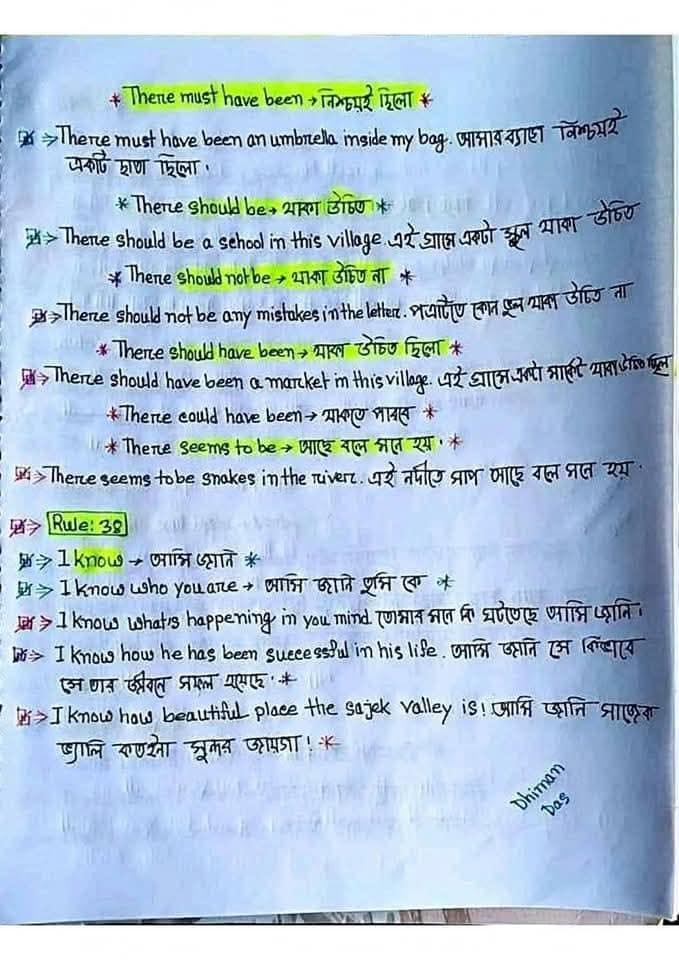 * There must have been → নিশ্চয়ই ছিলো *
⇒ There must have been an umbrella inside my bag. আমার ব্যাগে নিশ্চয়ই
একটি ছাতা ছিলো।
* There should be → থাকা উচিত *
⇒ There should be a school in this village. এই গ্রামে একটা স্কুল থাকা উচিত
* There should not be → থাকা উচিত না *
⇒ There should not be any mistakes in the letter. পত্রটিতে কোন ভুল থাকা উচিত না
* There should have been → থাকা উচিত ছিলো *
⇒ There should have been a market in this village. এই গ্রামে একটা মার্কেট থাকা উচিত ছিল
* There could have been → থাকতে পারবে *
* There seems to be → আছে বলে মনে হয়। *
⇒ There seems to be snakes in the river. এই নদীতে সাপ আছে বলে মনে হয়।
⇒ Rule: 38
⇒ I know → আমি জানি *
⇒ I know who you are → আমি জানি তুমি কে *
⇒ I know what's happening in you mind তোমার মনে কি ঘটতেছে আমি জানি।
⇒ I know how he has been successful in his life. আমি জানি সে কিভাবে
সে তার জীবনে সফল হয়েছে। *
⇒ I know how beautiful place the sajek valley is! আমি জানি সাজেক
ভ্যালি কতইনা সুন্দর জায়গা! *
Dhiman
Das